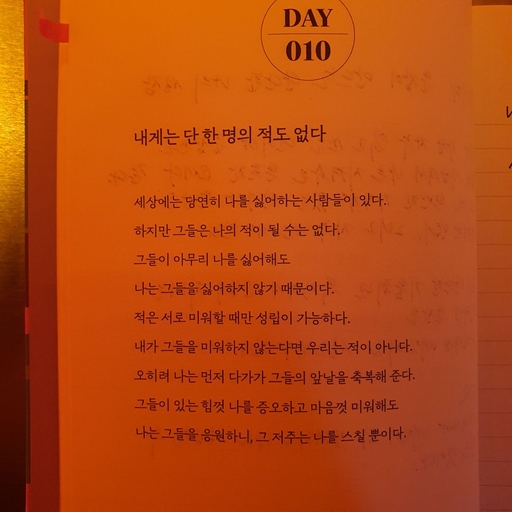 DAY
010
내게는 단 한 명의 적도 없다
세상에는 당연히 나를 싫어하는 사람들이 있다.
하지만 그들은 나의 적이 될 수는 없다.
그들이 아무리 나를 싫어해도
나는 그들을 싫어하지 않기 때문이다.
적은 서로 미워할 때만 성립이 가능하다.
내가 그들을 미워하지 않는다면 우리는 적이 아니다.
오히려 나는 먼저 다가가 그들의 앞날을 축복해 준다.
그들이 있는 힘껏 나를 증오하고 마음껏 미워해도
나는 그들을 응원하니, 그 저주는 나를 스칠 뿐이다.